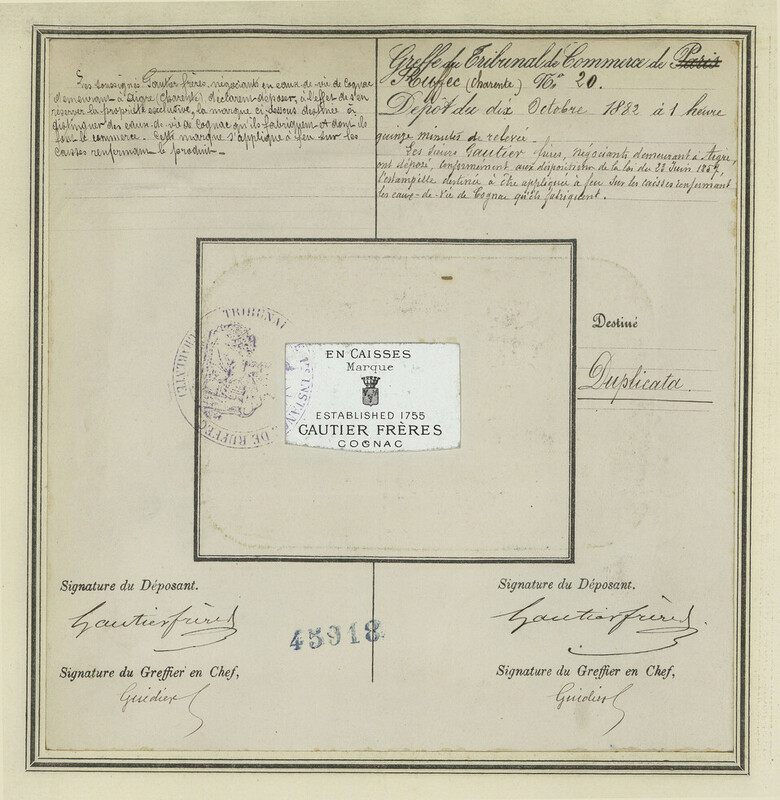 Les soussignés Gautier frères, négociants en eaux-de-vie de Cognac
demeurant à Aigre (Charente) déclarent déposer, à l'effet de s'en
réserver la propriété exclusive, la marque ci-dessous destinée à
distinguer des eaux de vie de Cognac qu'ils fabriquent et dont ils
font le commerce. Cette marque s'applique à feu sur les
caisses renfermant le produit.
Greffe du Tribunal de Commerce de Paris
Ruffec (Charente) No 20.
Dépôt du dix Octobre 1882 à 1 heure
quinze minutes de relevée.
Les sieurs Gautier frères, négociants demeurant à Aigre,
ont déposé, conformément aux dispositions de la loi des 23 Juin 1857,
l'estampille destinée à être appliquée à feu sur les caisses renfermant
les eaux-de-vie de Cognac qu'ils fabriquent.
TRIBUNAL
INSTAN
DE RUFFEC
(CHARENTE)
EN CAISSES
Marque
ESTABLISHED 1755
GAUTIER FRÈRES
COGNAC
Destiné
Duplicata.
Signature du Déposant.
Gautier frères
Signature du Greffier en Chef,
Guidier
45918
Signature du Déposant.
Gautier frères
Signature du Greffier en Chef,
Guidier